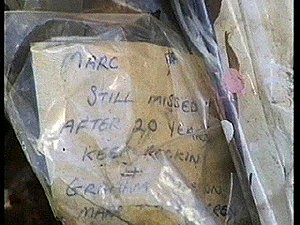 MARC
STILL MISSED
AFTER 20 YEARS
KEEP ROCKIN
GRAHAM
MARC